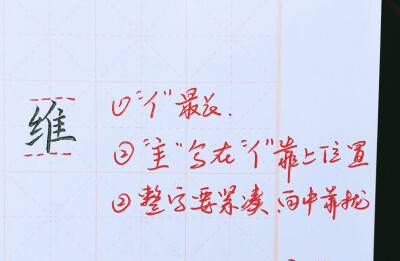 维
①“亻”最长.
②“主”写在“亻”靠上位置
③整字要紧凑,向中靠拢